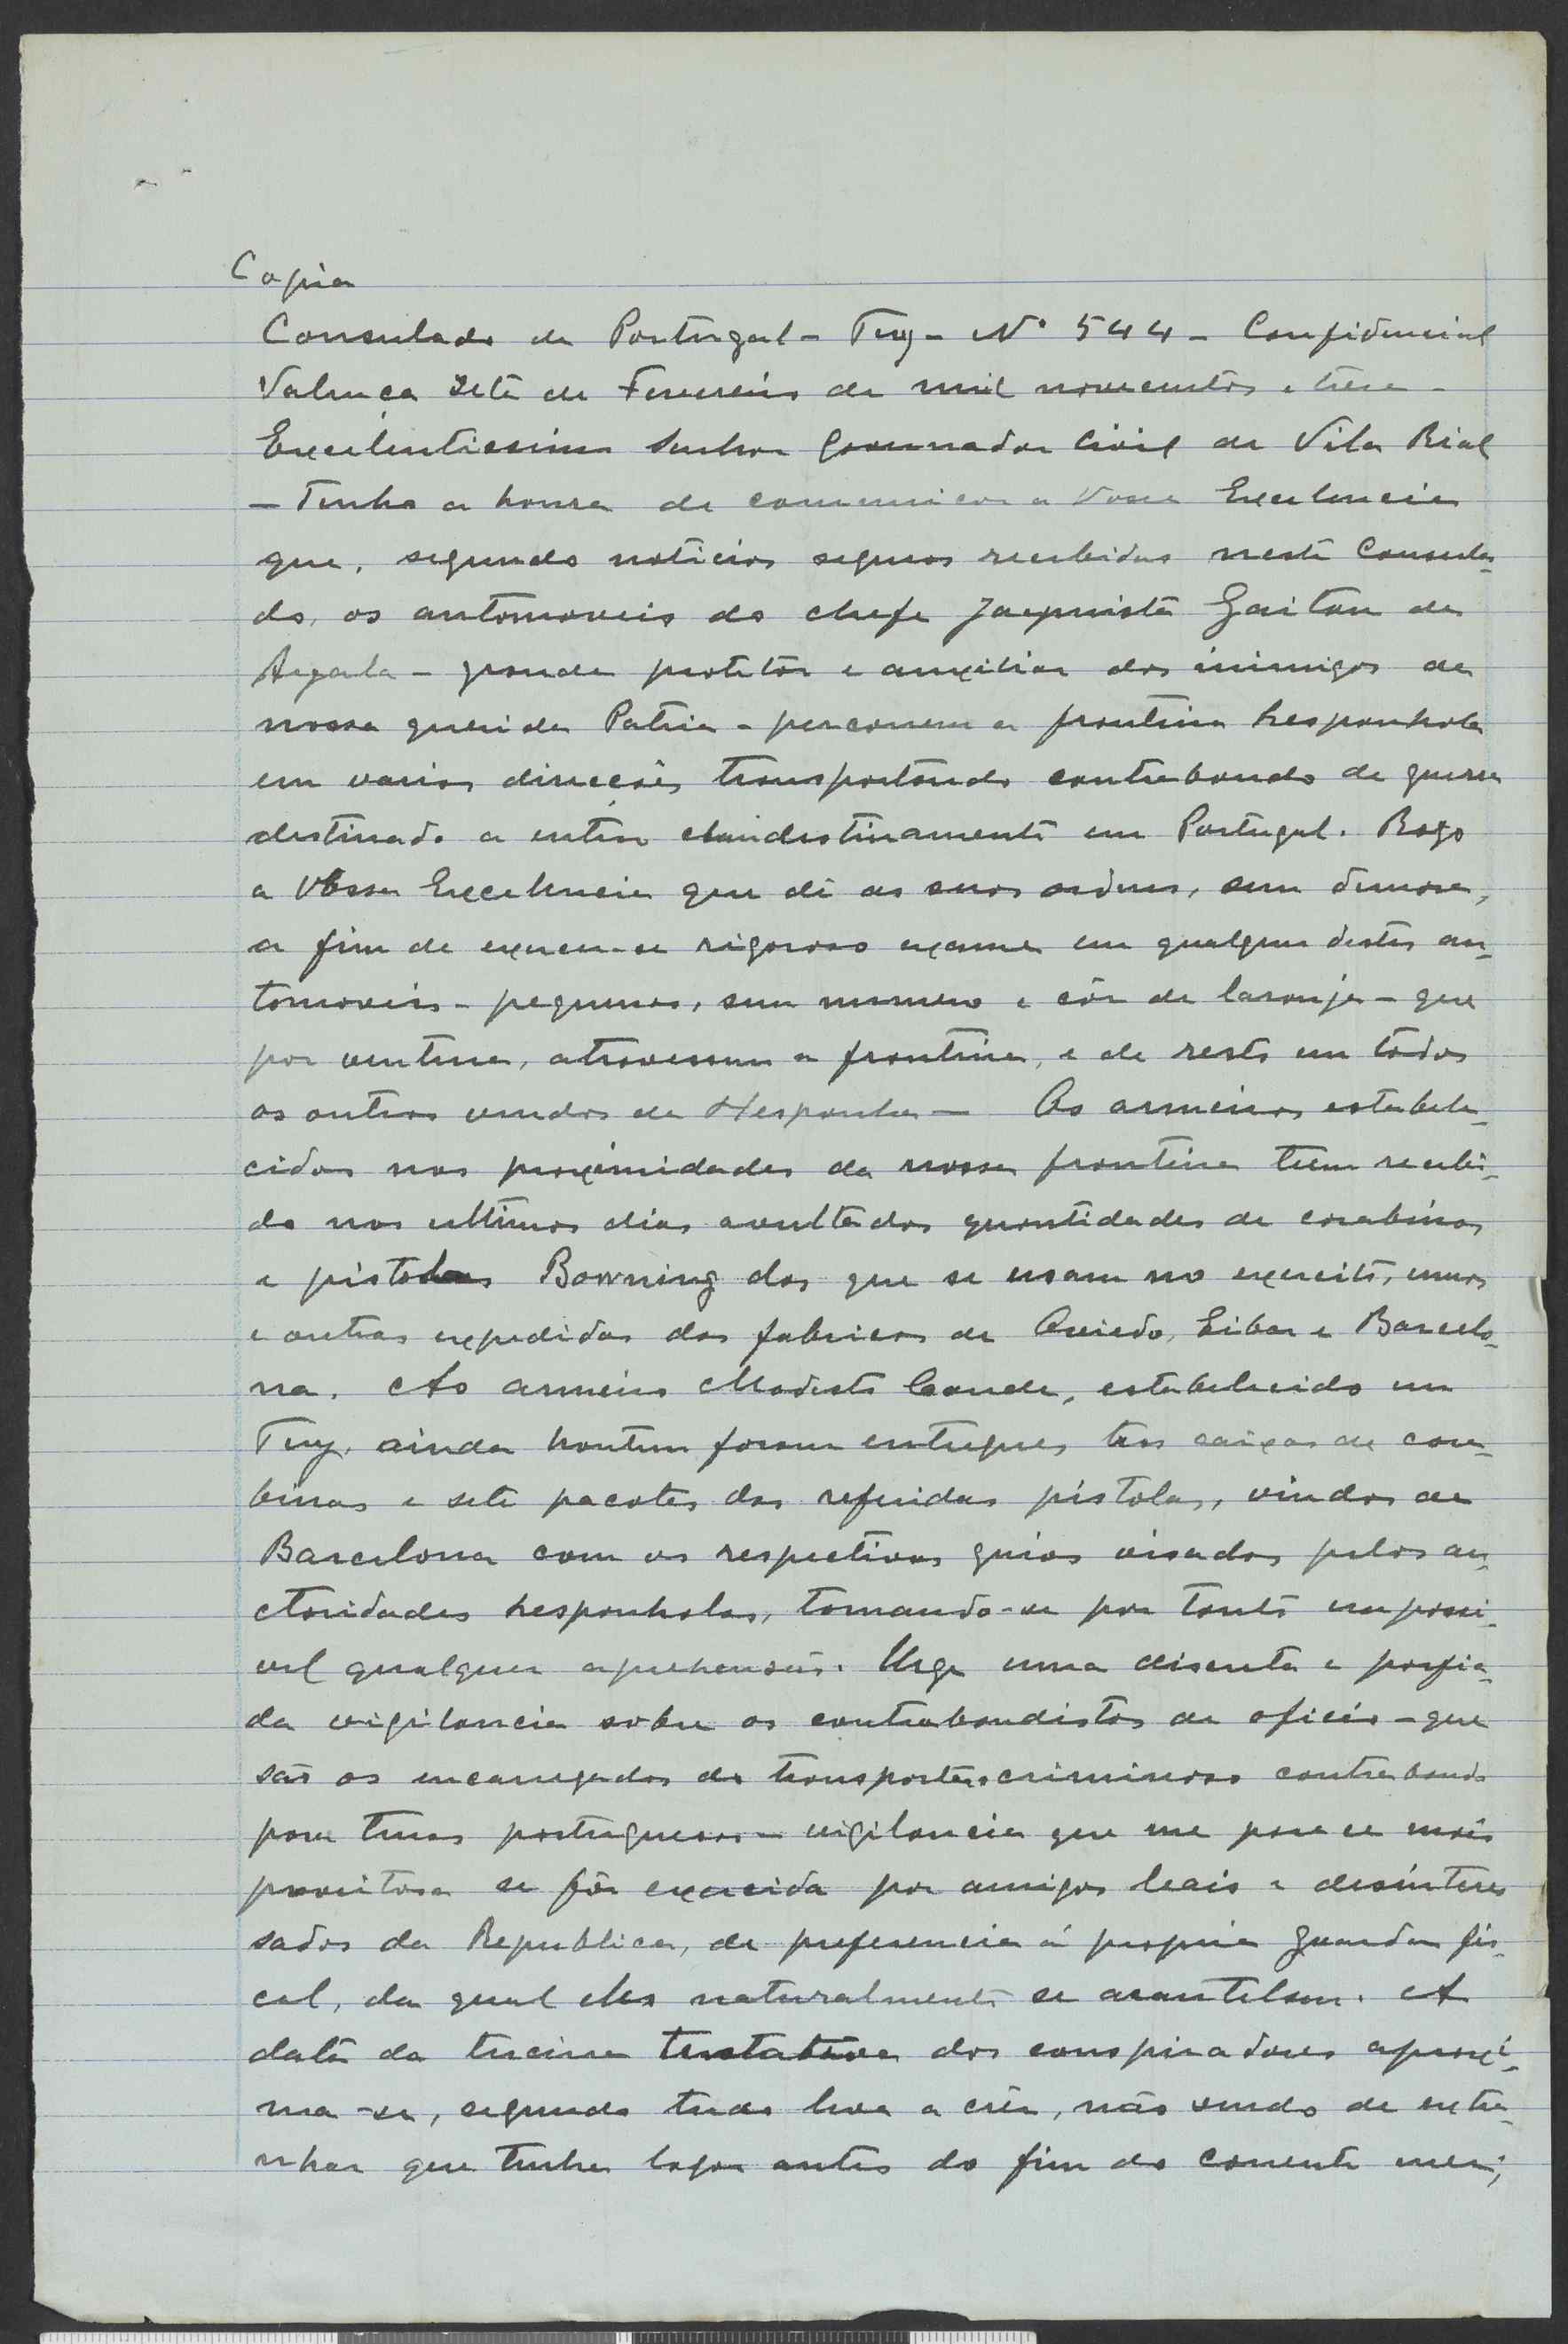 Copia
Consulado de Portugal - Tuy - Nº 544 - Confidencial
Valença sete de Fevereiro de mil novecentos e treze -
Excelentissimo Senhor Governador Civil de Vila Rial
- Tenho a honra de comunicar a Vossa Excelencia
que, segundo noticias seguras recebidas neste Consula-
do, os automoveis do chefe jaymista Gaitan de
Ayala - grande protetôr e auxiliar dos inimigos da
nossa querida Patria - percorrem a fronteira hespanhola
em varias direcções transportando contrabando de guerra
destinado a entrar clandestinamente em Portugal. Rogo
a Vossa Excelencia que dê as suas ordens, sem demora,
a fim de exercer-se rigoroso exame em qualquer destes au-
tomoveis - pequenos, sem numero e côr de laranja - que
por ventura, atravessem a fronteira, e de resto em tôdos
os outros vindos de Hespanha - Os armeiros estabele-
cidos nas proximidades da nossa fronteira teem recebi-
do nos ultimos dias avultadas quantidades de carabinas
e pistolas Bowning das que se usam no exercito, umas
e outras expedidas das fabricas de Oviedo, Eibar e Barcelo-
na. Ao armeiro Modesto Conde, estabelecido em
Tuy, ainda hontem foram entregues tres caixas de cara-
binas e sete pacotes das referidas pistolas, vindos de
Barcelona com as respectivas guias visadas pelas au-
ctoridades hespanholas, tornando-se por tanto impossi-
vel qualquer aprehensão. Urge uma discreta e porfia-
da vigilancia sobre os contrabandistas de oficio - que
são os encarregados do transporte criminoso contrabando
para terras portuguesas - vigilancia que me parece mais
proveitosa se fôr exercida por amigos leais e desinteres
sados da Republica, de preferencia á propria guarda fis-
cal, da qual eles naturalmente se acautelam. A
data da terceira tentativa dos conspiradores aproxi-
ma-se, segundo tudo leva a crêr, não sendo de extra-
nhar que tenha logar antes do fim do corrente mez;